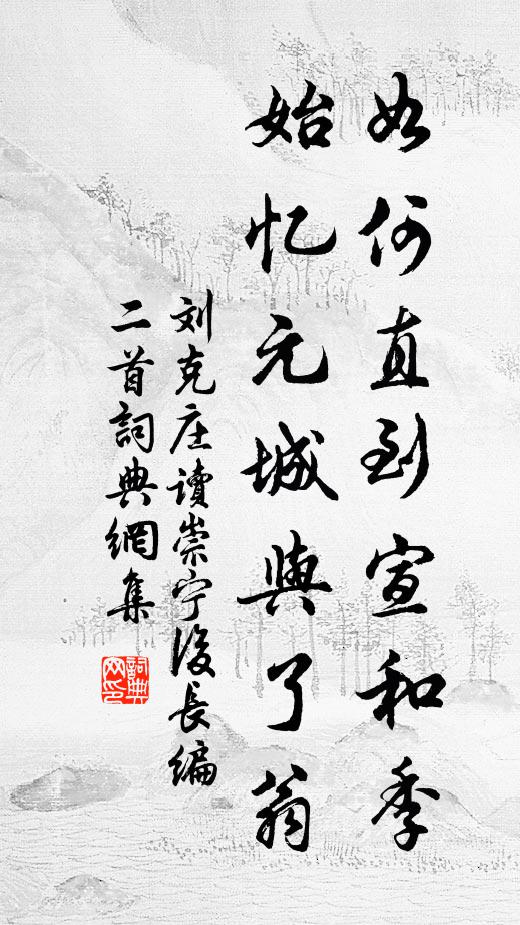 如何直到宣和季
始忆元城與了翁
刘克庄讀崇宁後長编
二首詞典網集
詞典網印